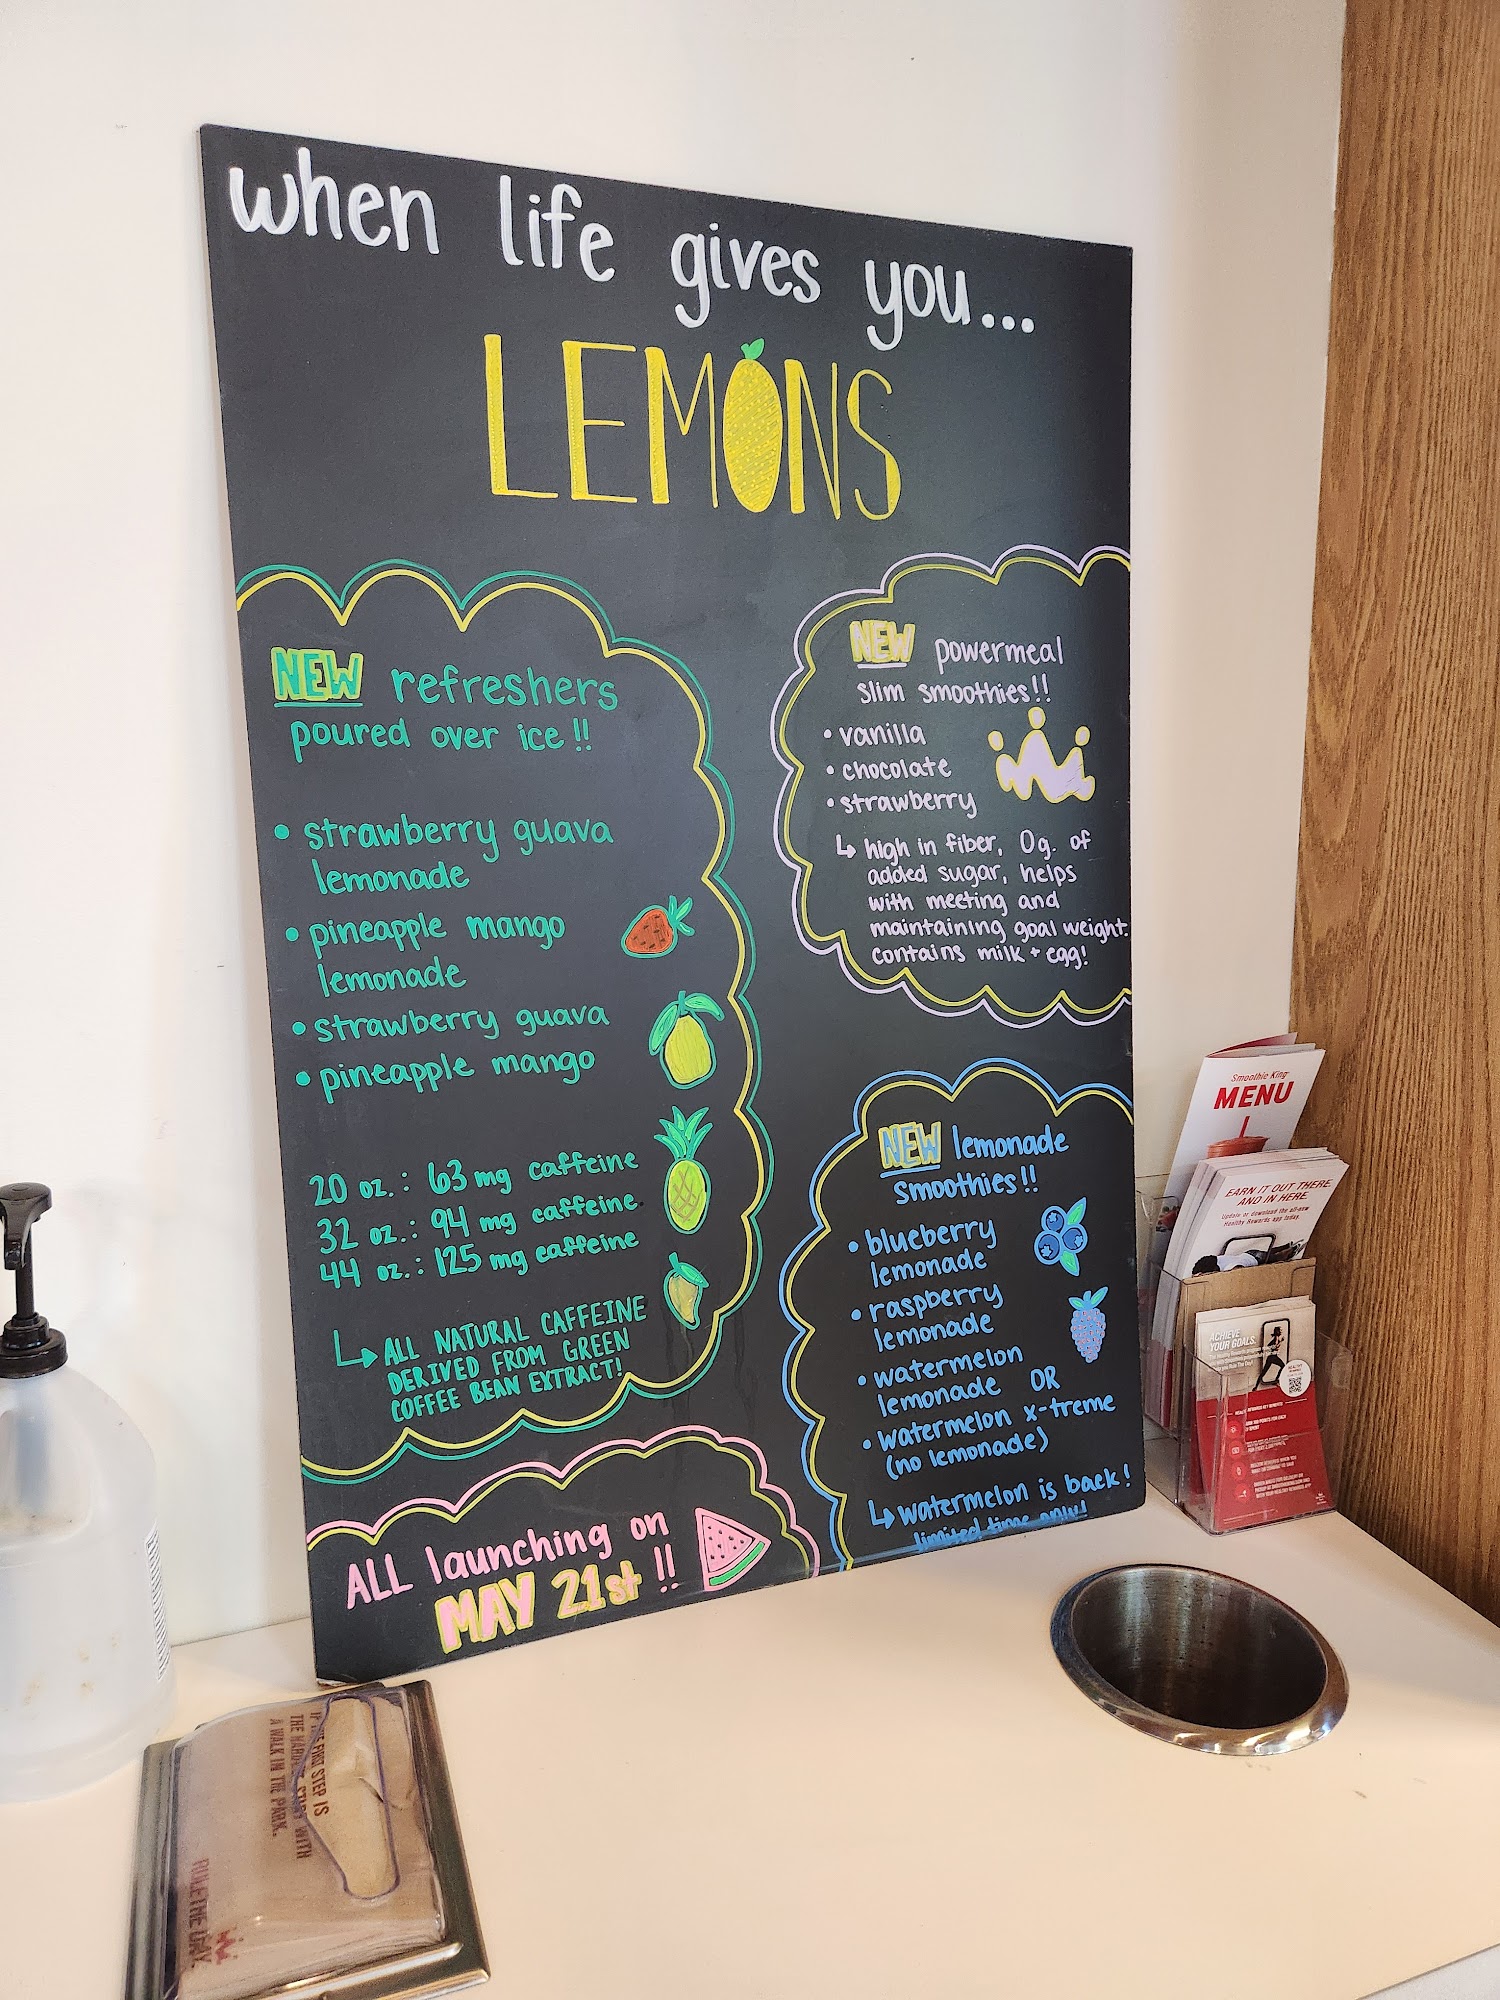 when life gives you...
LEMONS
NEW refreshers
poured over ice!!
• strawberry guava
lemonade
• pineapple mango
lemonade
• strawberry guava
• pineapple mango
20 oz.: 63 mg caffeine
32 oz.: 94 mg caffeine
44 oz.: 125 mg caffeine
↳ ALL NATURAL CAFFEINE
DERIVED FROM GREEN
COFFEE BEAN EXTRACT!
ALL launching on
MAY 21st!!
NEW powermeal
slim smoothies!!
• vanilla
• chocolate
• strawberry
↳ high in fiber, 0g. of
added sugar, helps
with meeting and
maintaining goal weight.
contains milk + egg!
NEW lemonade
smoothies!!
• blueberry
lemonade
• raspberry
lemonade
• watermelon
lemonade OR
• watermelon x-treme
(no lemonade)
↳ watermelon is back!
limited time only!
Smoothie King
MENU
EARN IT OUT THERE
AND IN HERE.
Update or download the all-new
Healthy Rewards app today.
ACHIEVE
YOUR GOALS.
THE FIRST STEP IS
THE HARDEST. START WITH
A WALK IN THE PARK.
RULE THE DAY.